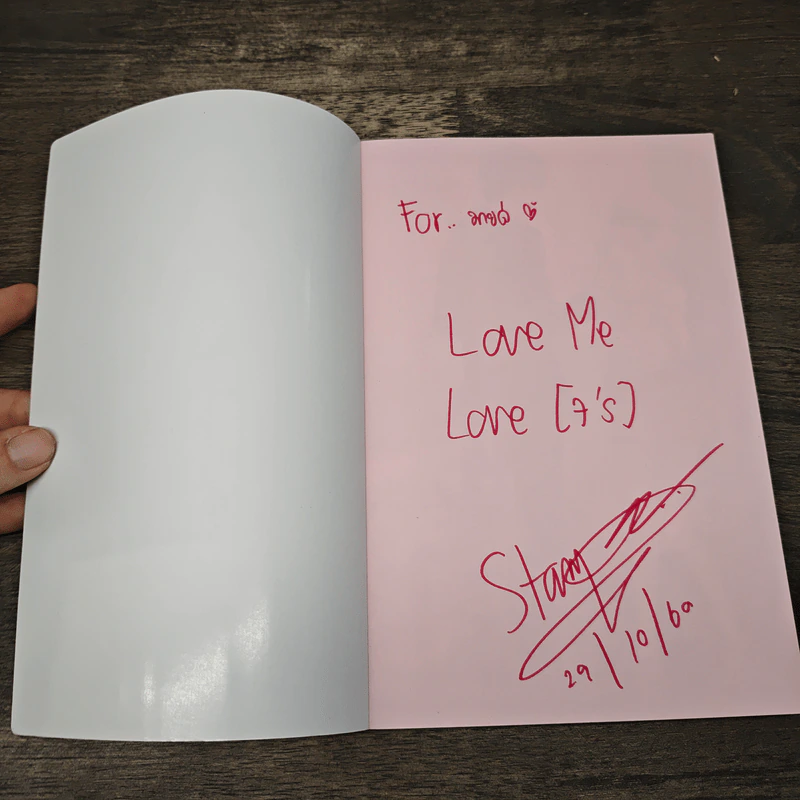 For.. ♡
Love Me
Love [7's]
Stamp
29/10/60